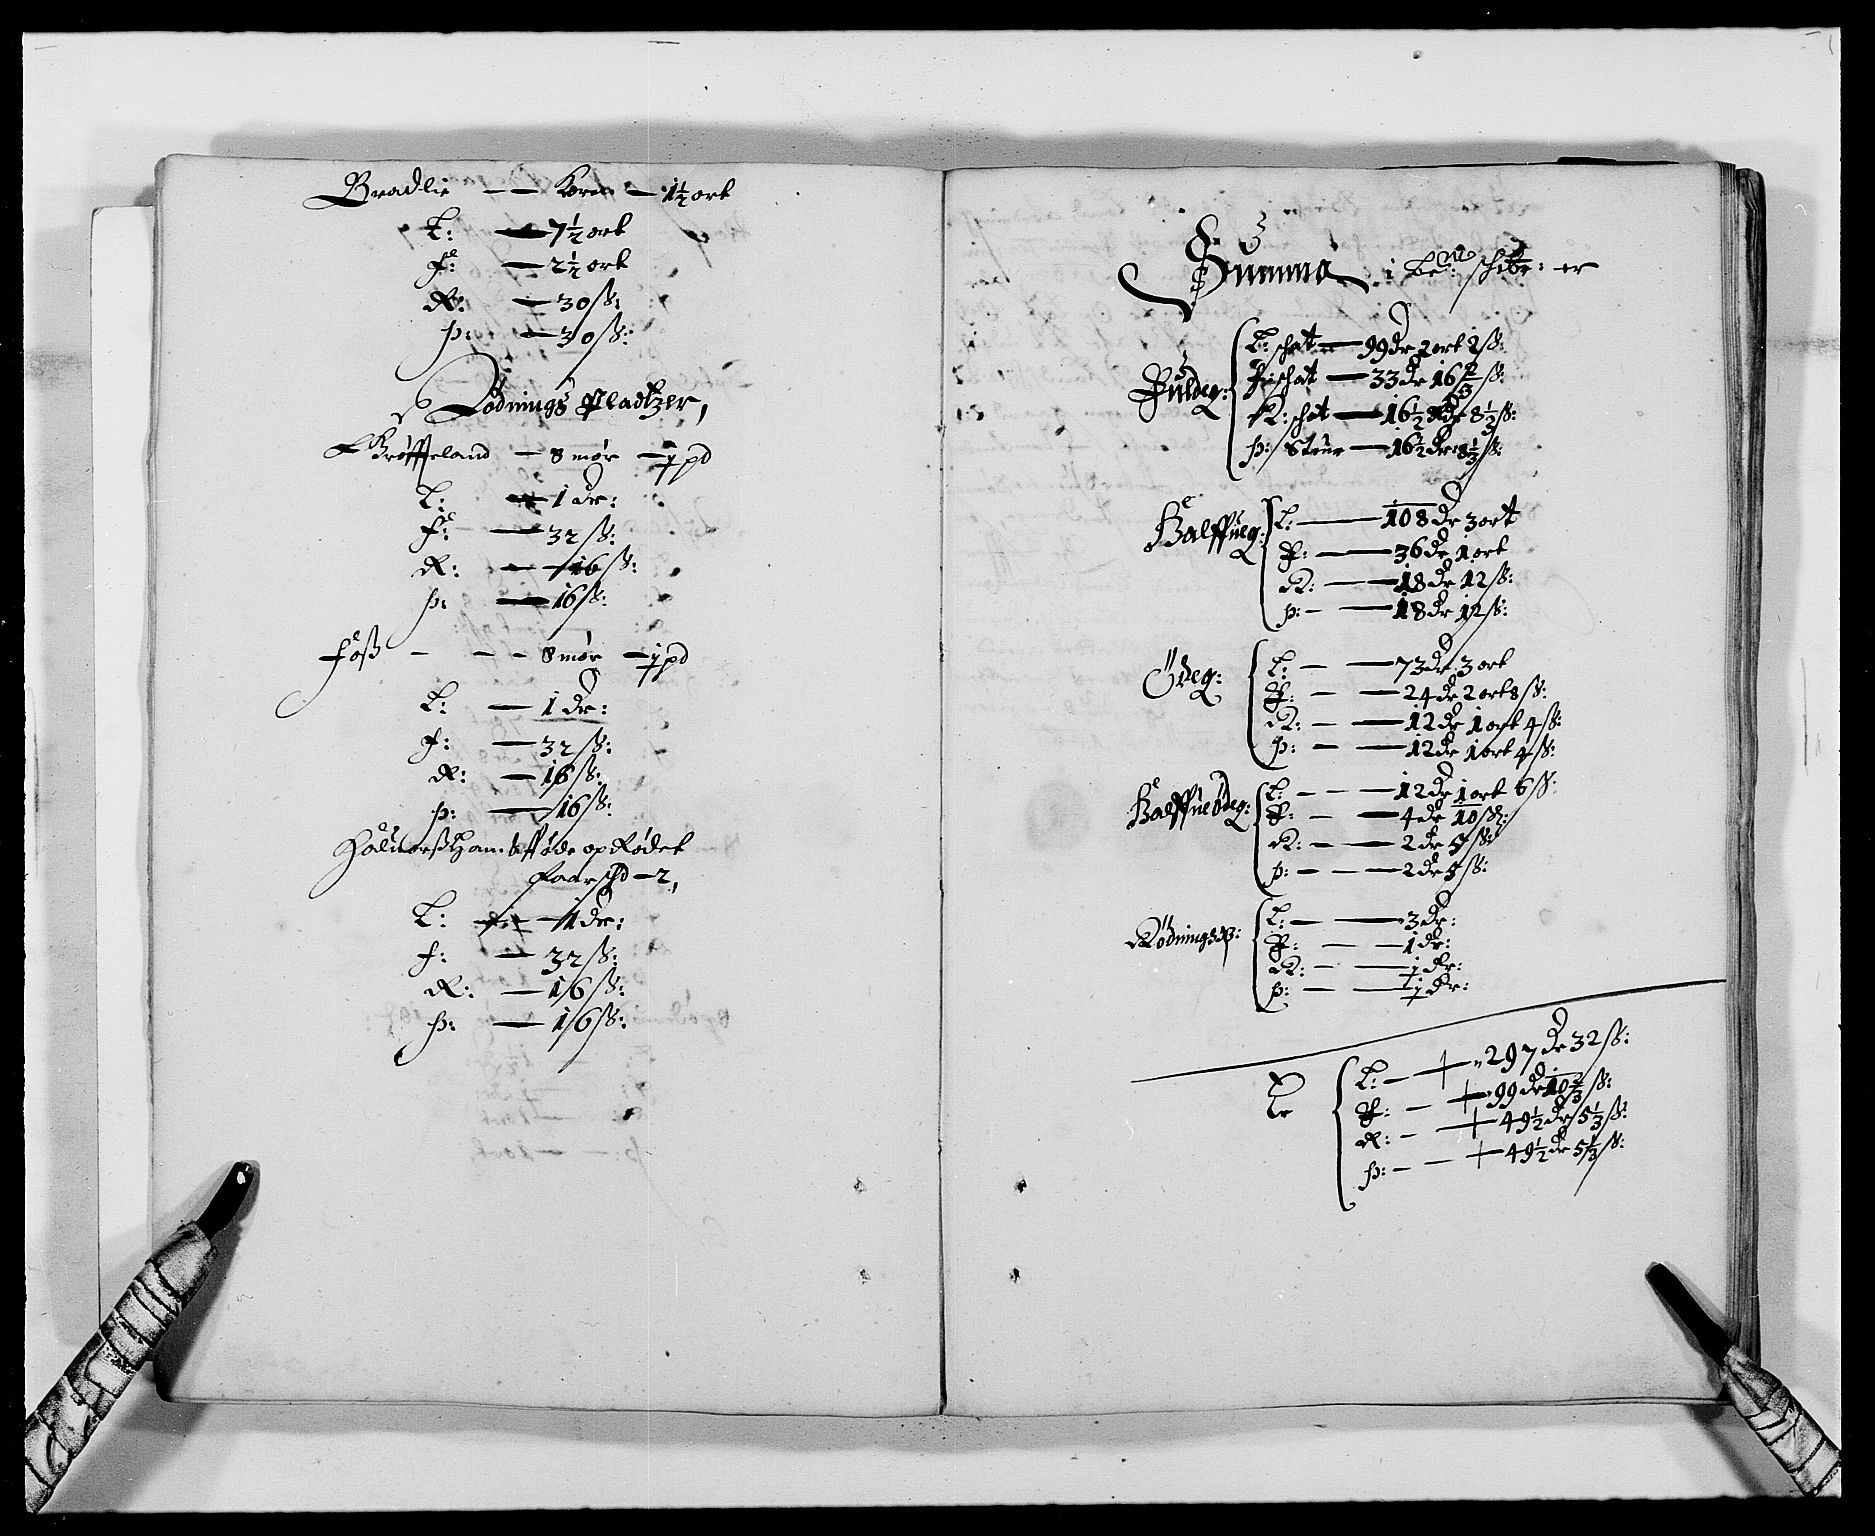 Bradlie — — Koren — 1½ ort
L: — 7½ ort
F: — 2½ ort
R: — 30 ß:
p: — 30 ß:
Rödnings Pladtzer,
Bröffeland — 8 mör — j pd
L: — 1 dr:
F: — 32 ß:
R: — 16 ß:
p: — 16 ß:
Foss — — — 8 mör — j pd
L: — 1 dr:
F: — 32 ß:
R: — 16 ß:
p: — 16 ß:
öde op Rödet
faarschd — 2,
L: — 1 dr:
F: — 32 ß:
R: — 16 ß:
p: — 16 ß:
Summa i schibr: er
Fuldeg:
L: schat — 99 dr 2 ort 2 ß:
F: schat — 33 dr 16 ⅔ ß:
R: schat — 16½ dr 8⅓ ß:
p: Steur — 16½ dr 8⅓ ß:
Halffueg:
L: — 108 dr 3 ort
F: — 36 dr 1 ort
R: — 18 dr 12 ß:
p: — 18 dr 12 ß:
Ödeg:
L: — 73 dr 3 ort
F: — 24 dr 2 ort 8 ß:
R: — 12 dr 1 ort 4 ß:
p: — 12 dr 1 ort 4 ß:
Halffueödeg:
L: — 12 dr 1 ort 6 ß:
F: — 4 dr 10 ß:
R: — 2 dr 5 ß:
p: — 2 dr 5 ß:
Rödningsp:
L: — 3 dr:
F: — 1 dr:
R: — ½ dr:
p: — ½ dr:
L: — 297 dr 32 ß:
F: — 99 dr 10⅔ ß:
R: — 49½ dr 5⅓ ß:
p: — 49½ dr 5⅓ ß: